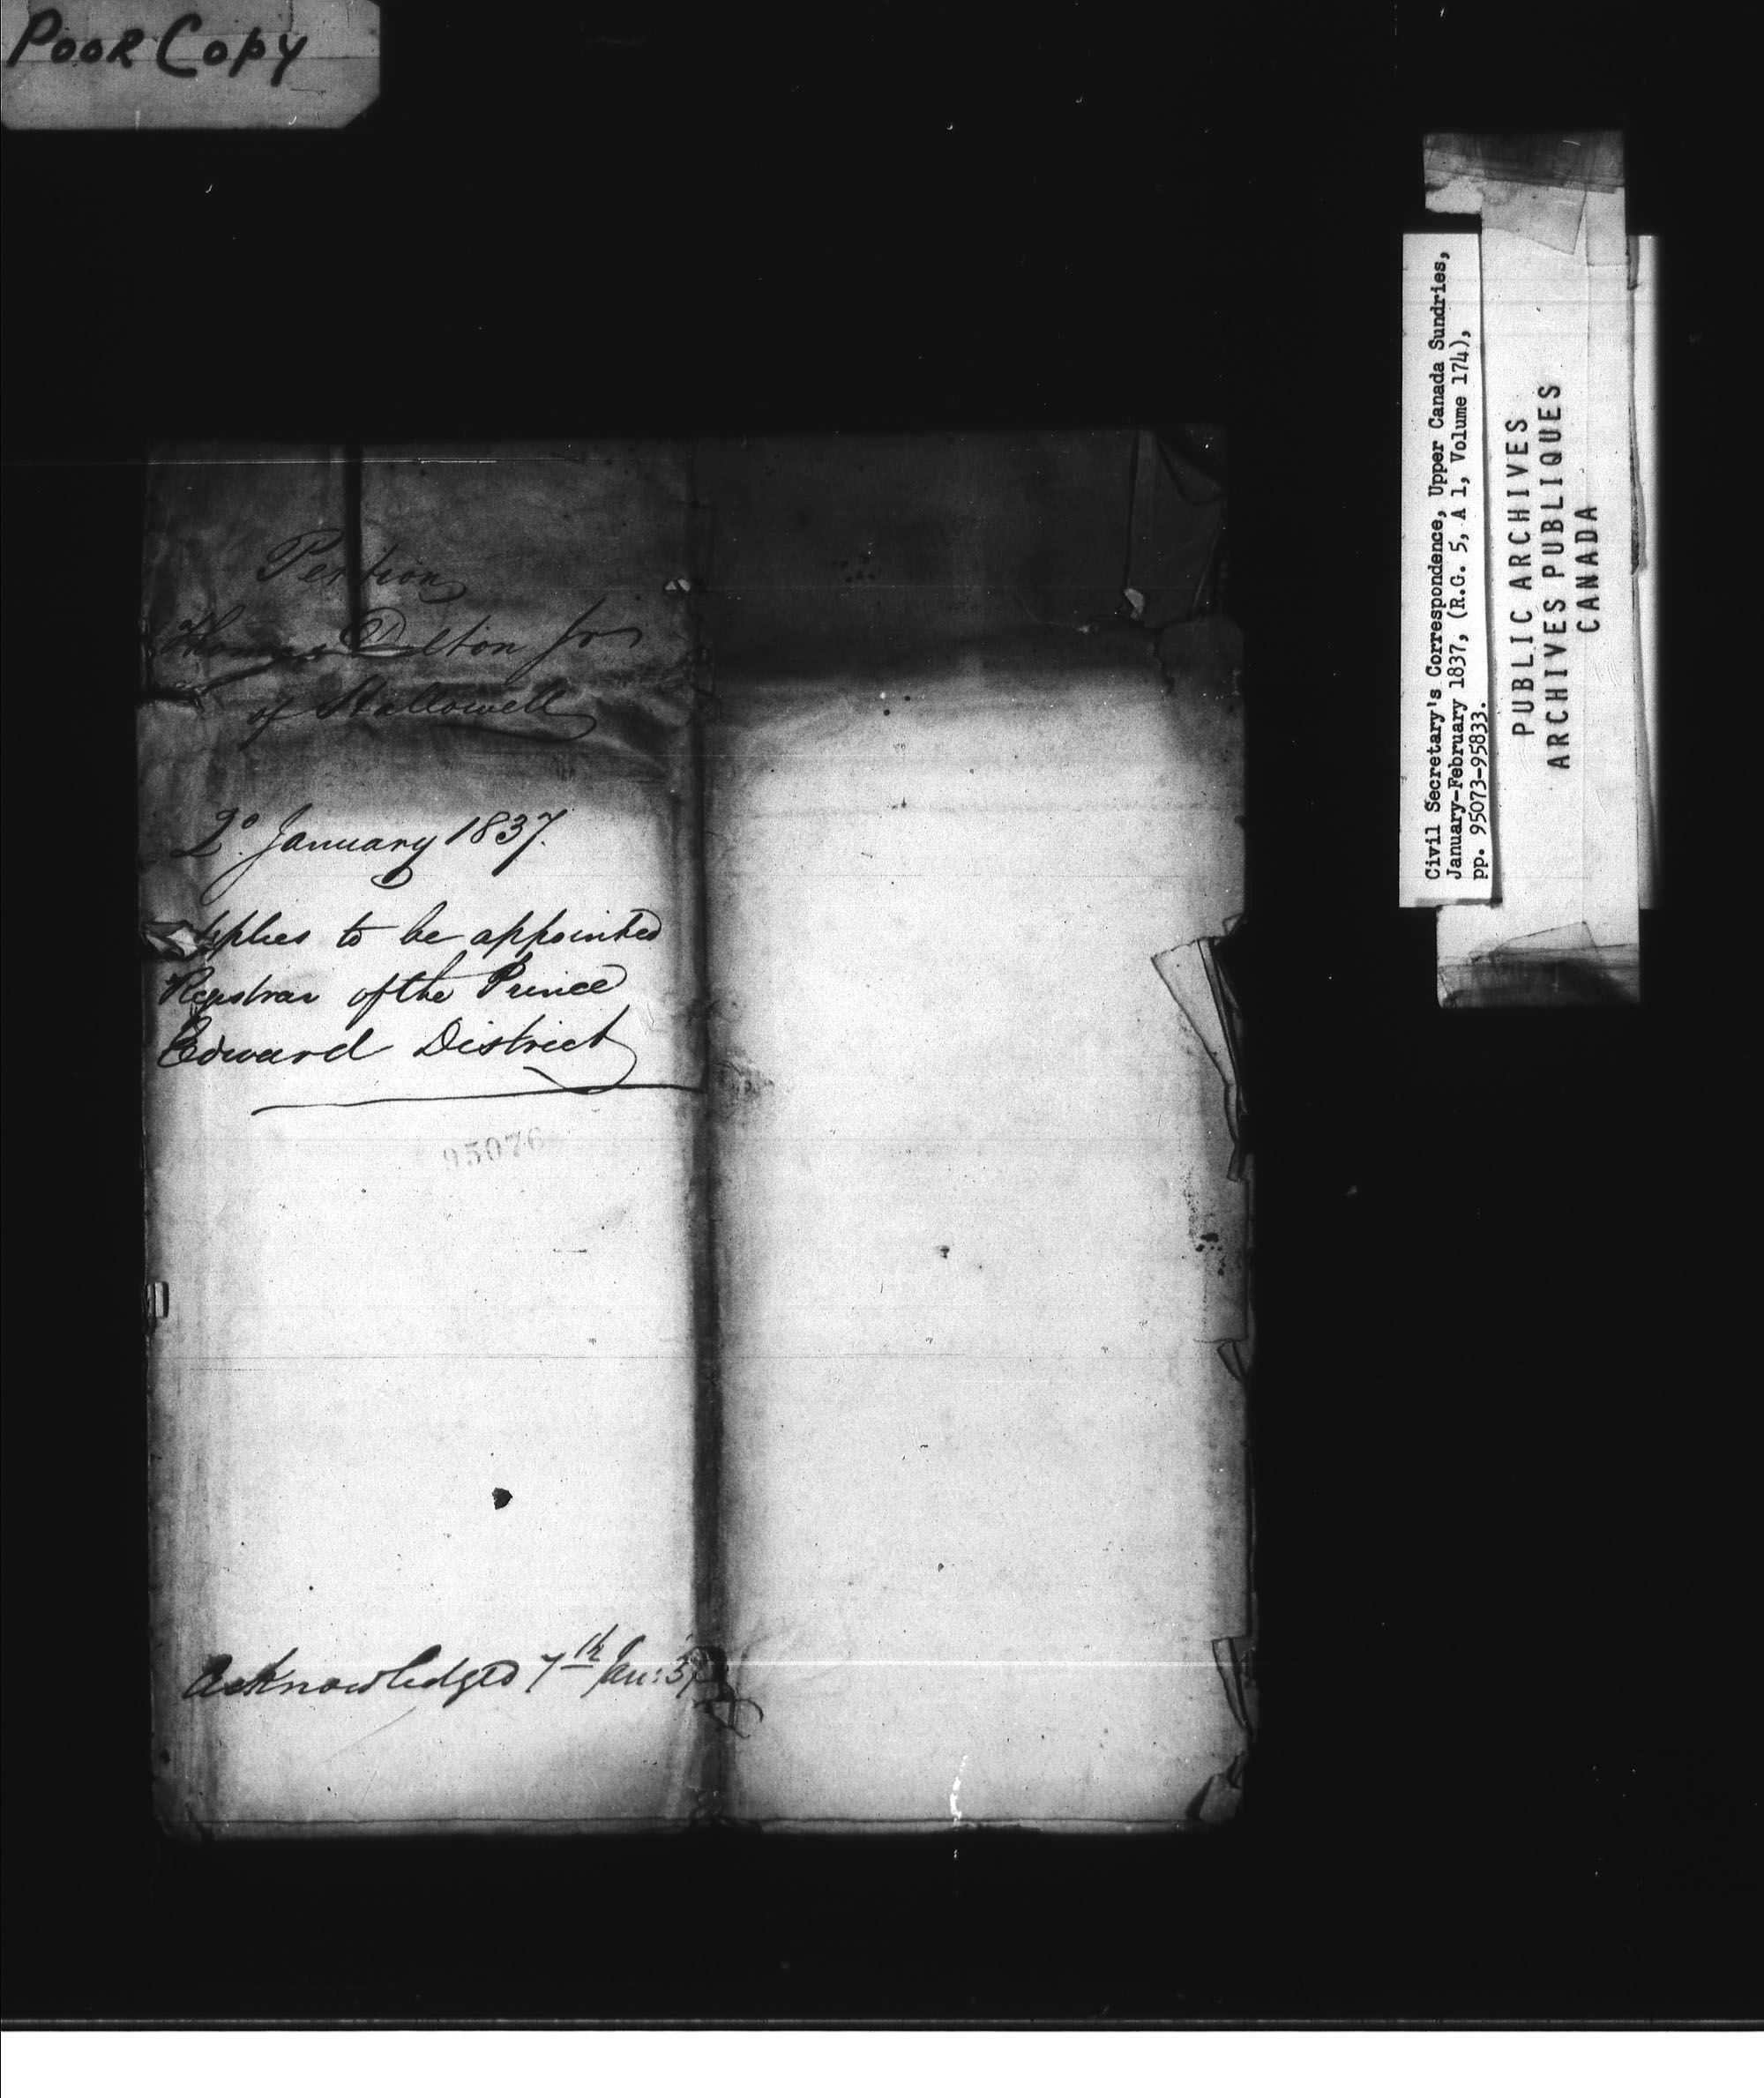 POOR COPY
Petition
Thomas Dalton Jr
of Hallowell
2º January 1837.
Applies to be appointed
Registrar of the Prince
Edward District
95076
Acknowledged 7th Jan: 37
Civil Secretary's Correspondence, Upper Canada Sundries,
January-February 1837, (R.G. 5, A 1, Volume 174),
pp. 95073-95833.
PUBLIC ARCHIVES
ARCHIVES PUBLIQUES
CANADA